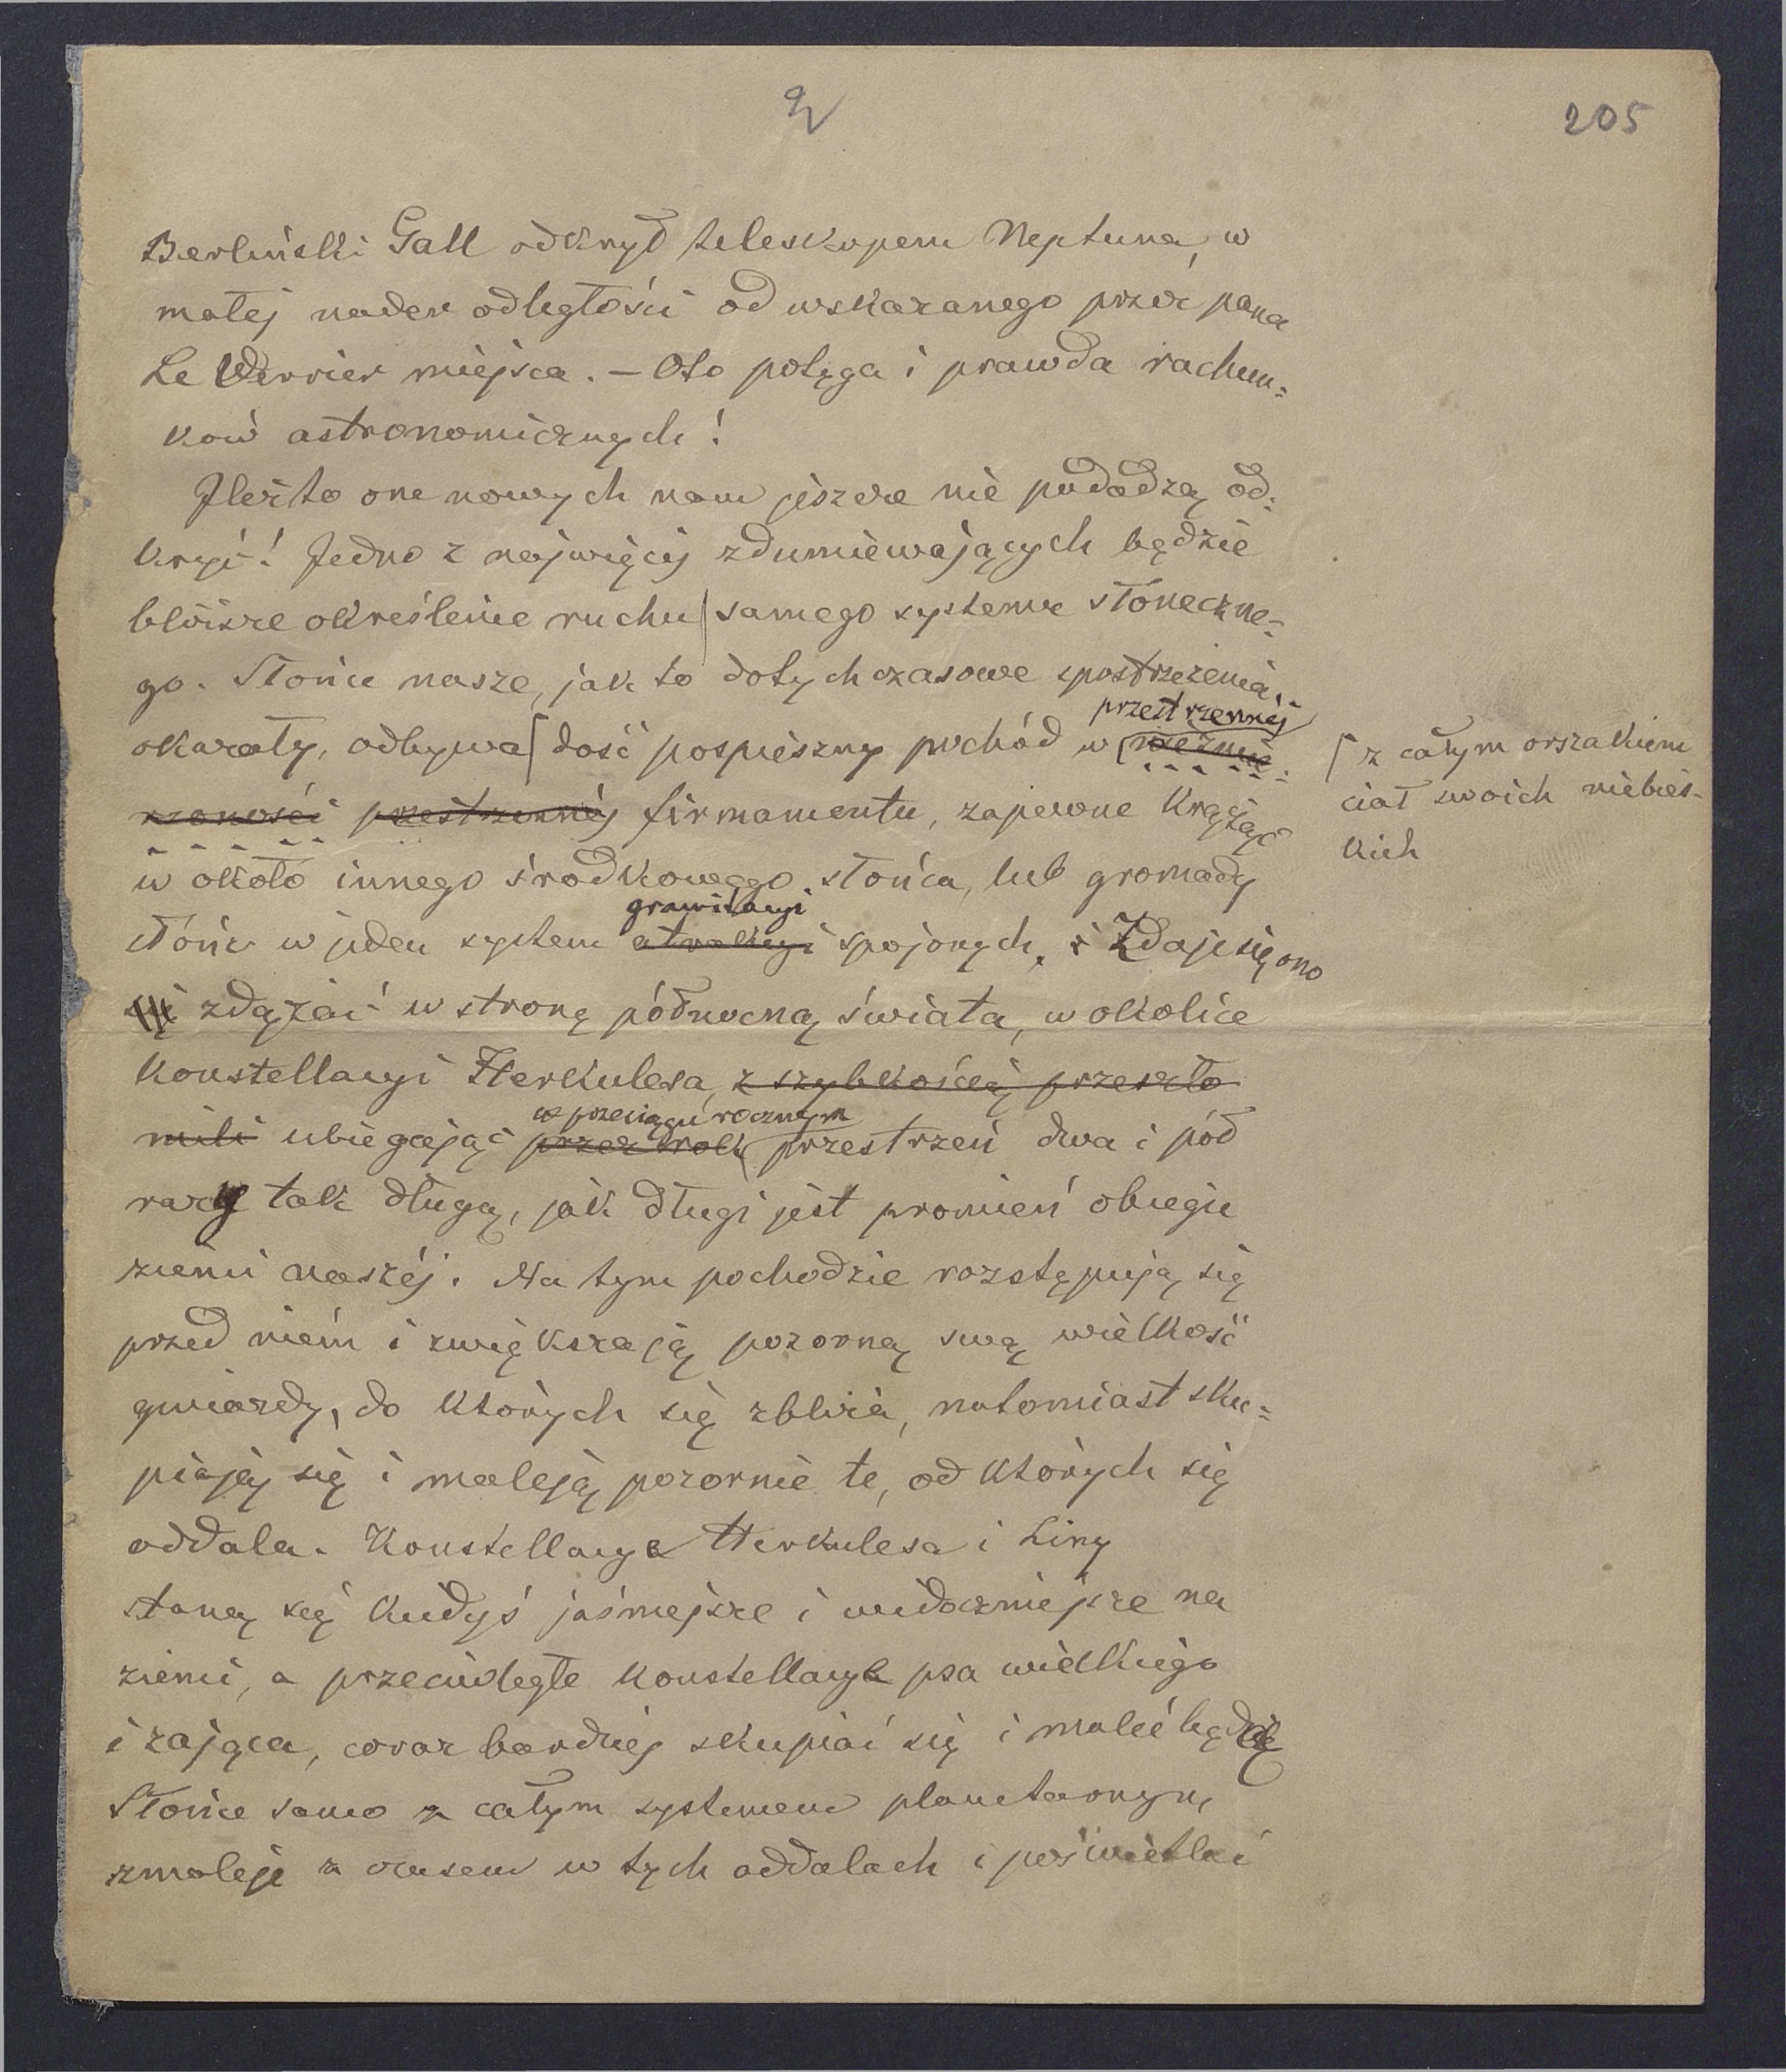 2
205
Berliński Gall odkrył teleskopem Neptuna, w
małej nader odległości od wskazanego przez pana
Le Verrier miejsca. — Oto potęga i prawda rachun=
ków astronomicznych!
Ileżto one nowych nam jeszcze nie podadzą od=
kryć! Jedno z najwięcej zdumiewających będzie
bliższe określenie ruchu samego systemu słoneczne=
go. Słońce nasze, jak to dotychczasowe spostrzeżenia
przestrzennéj
okazały, odbywa ⌠ dość pospieszny pochód w niezmie=
⌠ z całym orszakiem
ciał swoich niebies-
kich
rzoności przestrzennéj firmamentu, zapewne krążąc
w około innego środkowego słońca, lub gromady
grawitacyi
słońc w jeden system atrakcyi spojonych. i Zdaje się ono
się zdążać w stronę północną świata, w okolice
konstellacyi Herkulesa, z szybkością przeszło
w przeciągu rocznym
mili ubiegając przez rok przestrzeń dwa i pół
razy tak długą, jak długi jest promień obiegu
ziemi naszéj. Na tym pochodzie rozstępują się
przed niém i zwiększają pozorną swą wielkość
gwiazdy, do których się zbliża, natomiast sku=
piają się i maleją pozornie te, od których się
oddala. Konstellacye Herkulesa i Liry
staną się kiedyś jaśniejsze i widoczniejsze na
ziemi, a przeciwległe konstellacye psa wielkiego
i zająca, coraz bardziej skupiać się i maleć będą
Słońce samo z całym systemem planetarnym,
zmaleje z czasem w tych oddalach i